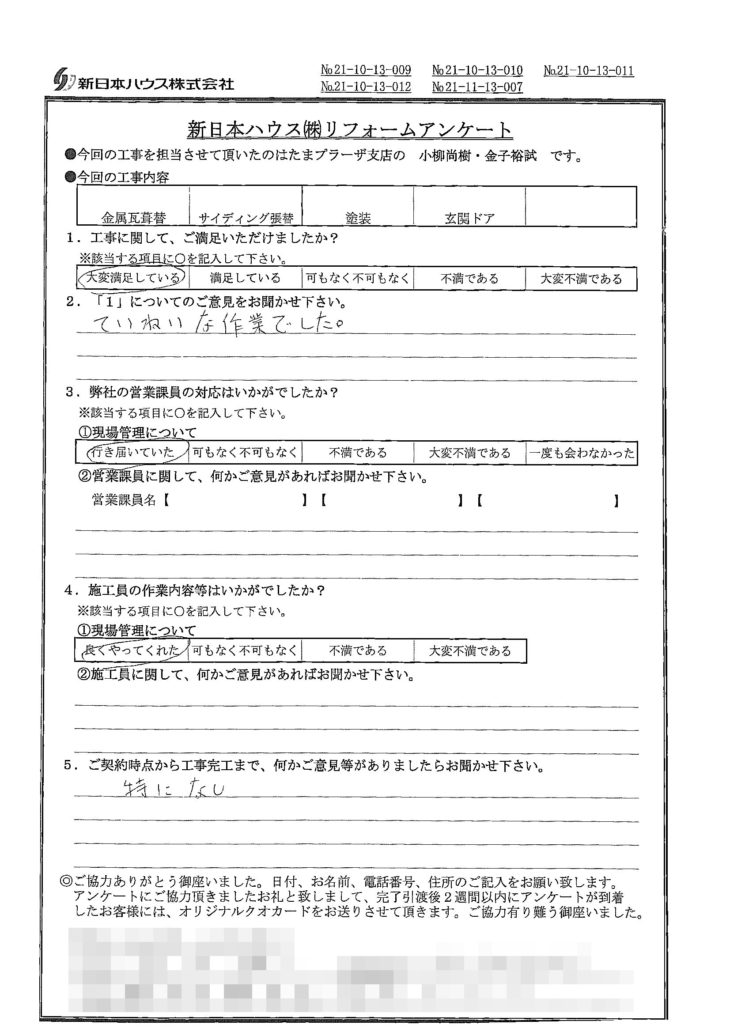 新日本ハウス株式会社
№21-10-13-009 №21-10-13-010 №21-10-13-011
№21-10-13-012 №21-11-13-007
新日本ハウス㈱リフォームアンケート
●今回の工事を担当させて頂いたのはたまプラーザ支店の 小柳尚樹・金子裕試 です。
●今回の工事内容
金属瓦葺替 サイディング張替 塗装 玄関ドア
1．工事に関して、ご満足いただけましたか？
※該当する項目に○を記入して下さい。
大変満足している 満足している 可もなく不可もなく 不満である 大変不満である
2．「1」についてのご意見をお聞かせ下さい。
ていねいな作業でした。
3．弊社の営業課員の対応はいかがでしたか？
※該当する項目に○を記入して下さい。
①現場管理について
行き届いていた 可もなく不可もなく 不満である 大変不満である 一度も会わなかった
②営業課員に関して、何かご意見があればお聞かせ下さい。
営業課員名【 】【 】【 】
4．施工員の作業内容等はいかがでしたか？
※該当する項目に○を記入して下さい。
①現場管理について
良くやってくれた 可もなく不可もなく 不満である 大変不満である
②施工員に関して、何かご意見があればお聞かせ下さい。
5．ご契約時点から工事完工まで、何かご意見等がありましたらお聞かせ下さい。
特になし
◎ご協力ありがとう御座いました。日付、お名前、電話番号、住所のご記入をお願い致します。
アンケートにご協力頂きましたお礼と致しまして、完了引渡後2週間以内にアンケートが到着
したお客様には、オリジナルクオカードをお送りさせて頂きます。ご協力有り難う御座いました。